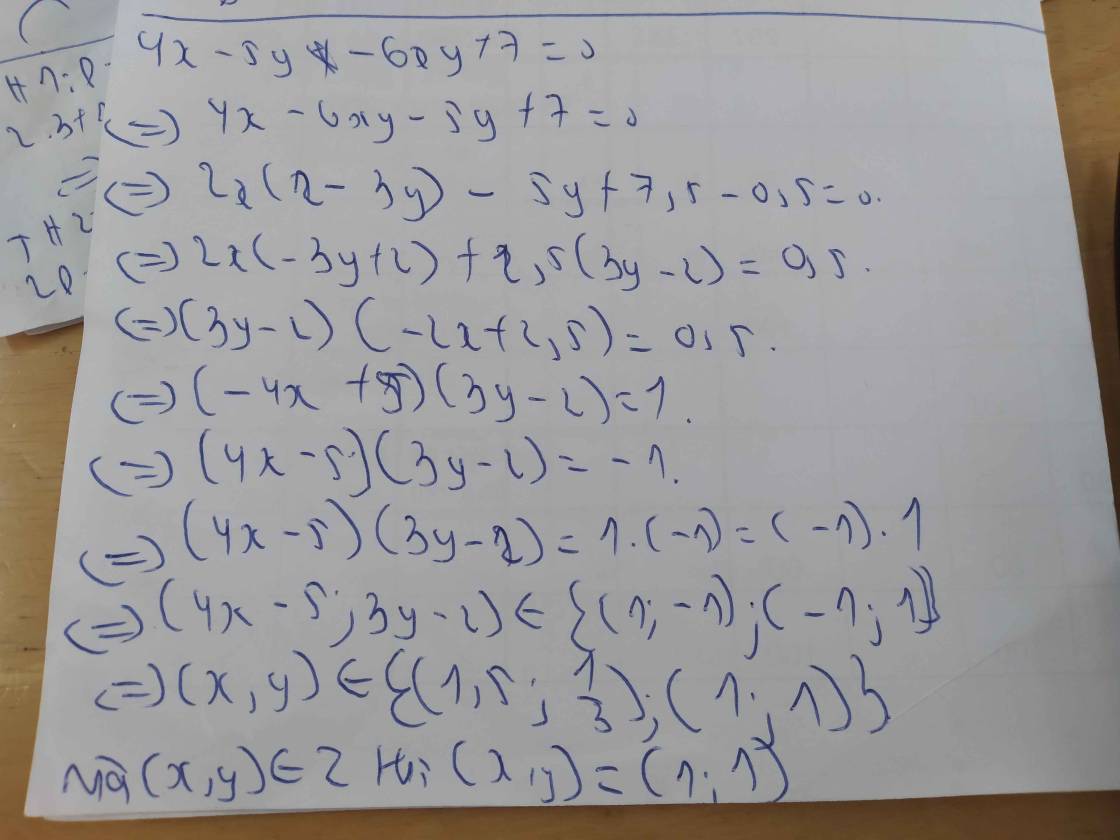 H 1:
2.3+
=)
TH2
4x - 5y - 6xy + 7 = 0
(=) 4x - 6xy - 5y + 7 = 0
(=) 2x(2 - 3y) - 5y + 7,5 - 0,5 = 0.
(=) 2x(-3y+2) + 2,5(3y-2) = 0,5.
(=) (3y-2) (-2x+2,5) = 0,5.
(=) (-4x + 5)(3y-2) = 1.
(=) (4x-5)(3y-2) = -1.
(=) (4x-5)(3y-2) = 1.(-1) = (-1).1
(=) (4x-5; 3y-2) ∈ {(1; -1); (-1; 1)}
(=) (x, y) ∈ {(1,5; 1/3); (1; 1)}
Mà (x,y) ∈ Z thì (x,y) = (1; 1)